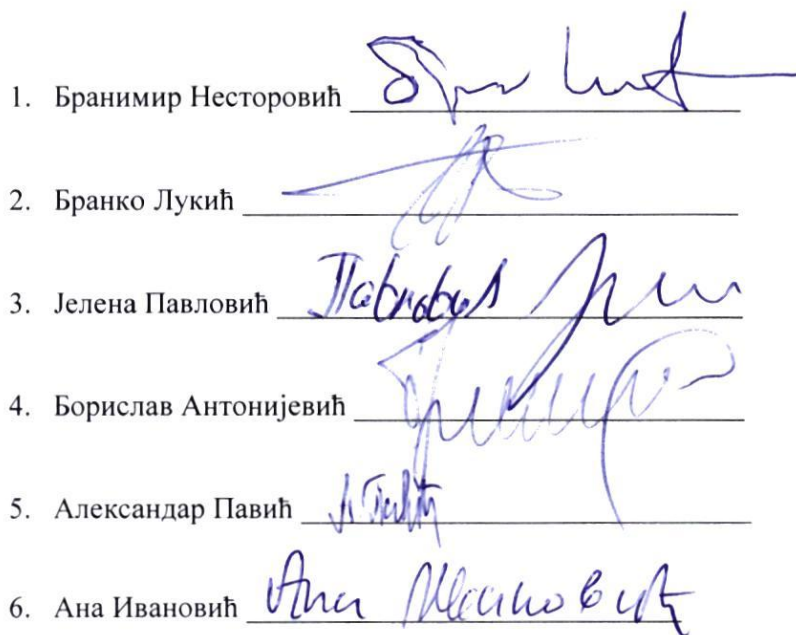 1. Бранимир Несторовић
2. Бранко Лукић
3. Јелена Павловић Павловић
4. Борислав Антонијевић
5. Александар Павић
6. Ана Ивановић Ана Ивановић